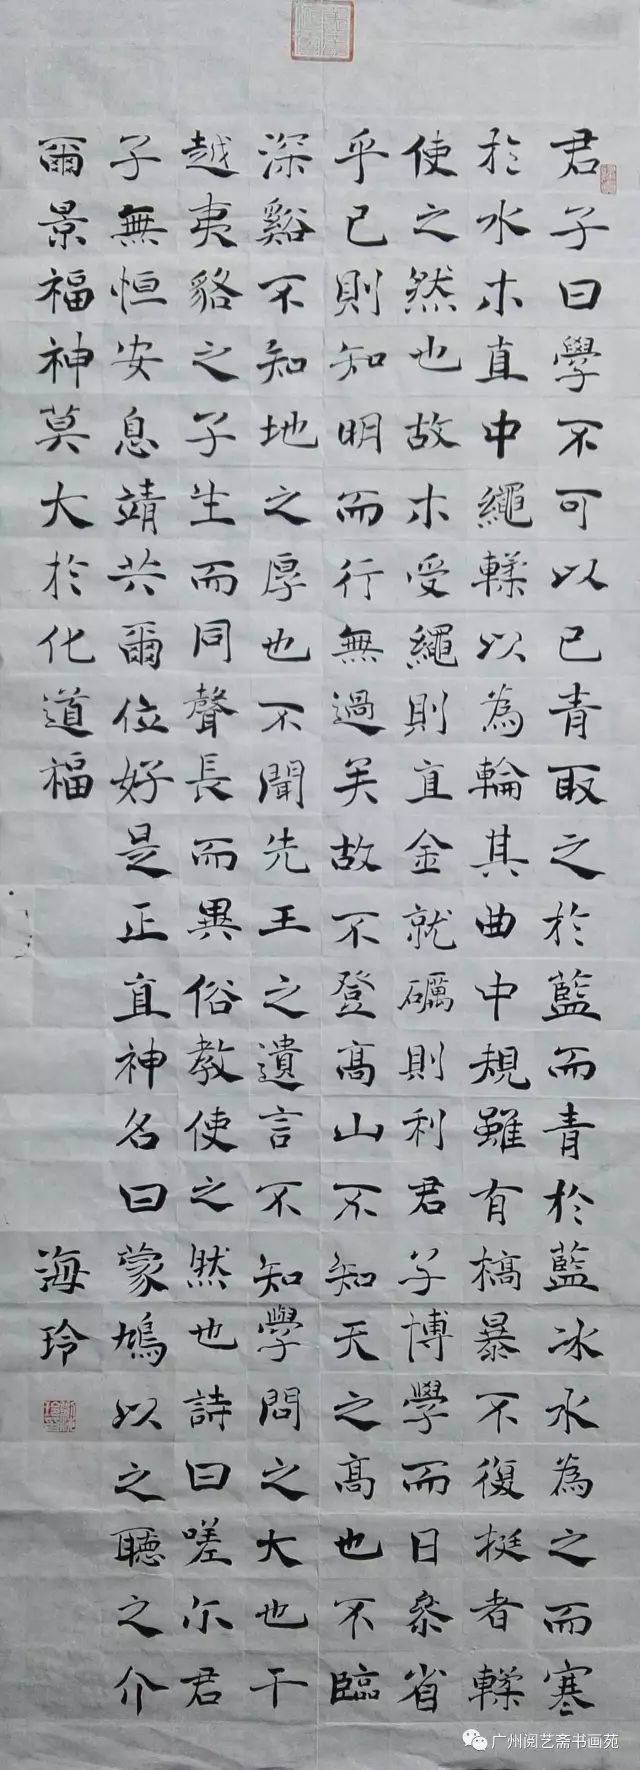 君子曰學不可以已青取之於藍而青於藍冰水為之而寒
於水木直中繩輮以為輪其曲中規雖有槁暴不復挺者輮
使之然也故木受繩則直金就礪則利君子博學而日叅省
乎已則知明而行無過矣故不登高山不知天之高也不臨
深谿不知地之厚也不聞先王之遺言不知學問之大也干
越夷貉之子生而同聲長而異俗教使之然也詩曰嗟尔君
子無恒安息靖共爾位好是正直神名曰蒙鳩以之聽之介
爾景福神莫大於化道福
海玲
广州阅艺斋书画苑